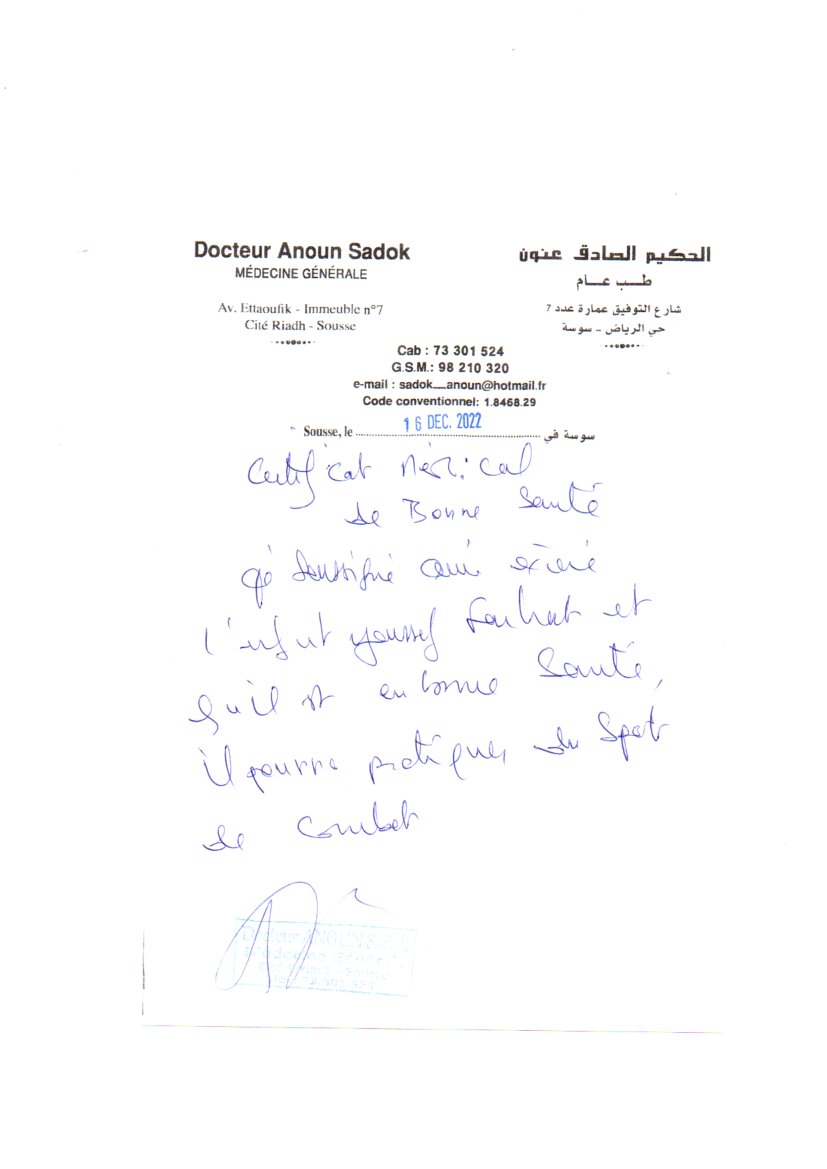 Docteur Anoun Sadok
MÉDECINE GÉNÉRALE
Av. Ettaoufik - Immeuble n°7
Cité Riadh - Sousse
الحكيم الصادق عنون
طب عام
شارع التوفيق عمارة عدد 7
حي الرياض - سوسة
Cab : 73 301 524
G.S.M.: 98 210 320
e-mail : sadok__anoun@hotmail.fr
Code conventionnel: 1.8468.29
Sousse, le 16 DEC. 2022 سوسة في
Certificat Médical
de Bonne Santé
Je soussigné avoir examiné
l'enfant Youssef Farhat et
qu'il est en bonne Santé,
il pourra pratiquer du Sport
de Combat
Docteur ANOUN